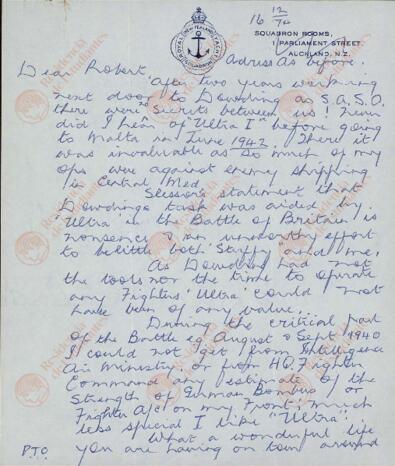 16 12/74
ROYAL NEW ZEALAND YACHT SQUADRON
SQUADRON ROOMS,
PARLIAMENT STREET,
AUCKLAND, N.Z.
Address As before.
Dear Robert,
After two years working
next door to Dowding as S.A.S.O.
there were no secrets between us! Never
did I hear of "Ultra I" before going
to Malta in June 1942. There it
was invaluable as so much of my
ops were against enemy shipping
in Central Med.
Slessor's statement that
Dowdings task was aided by
"Ultra" in the Battle of Britain is
nonsense & an unworthy effort
to belittle both "Stuffy" and me.
As Dowding had not
the tools nor the time to operate
any Fighters 'Ultra' could not
have been of any value.
During the critical part
of the Battle eg August & Sept 1940
I could not get from Intelligence
Air Ministry, or from HQ. Fighter
Command any estimate of the
strength of German Bombers or
Fighter A/c on my Front; much
less special I like "Ultra".
What a wonderful life
P.T.O. you are having on tour around
Residencia de Estudiantes